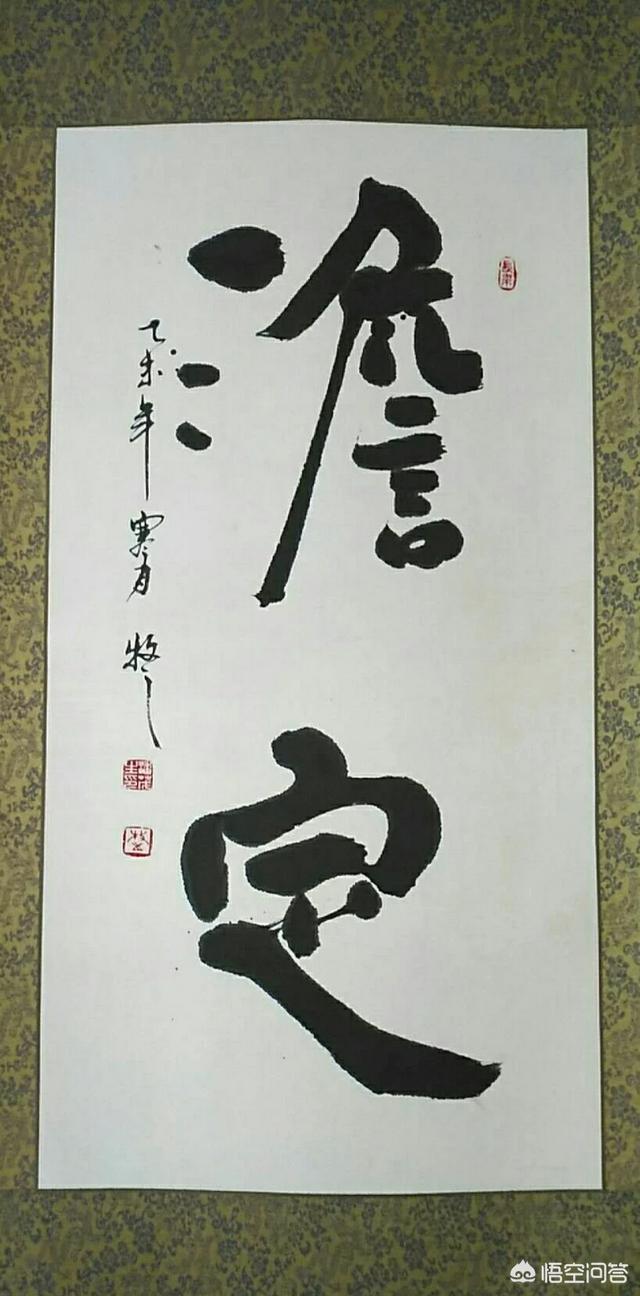 澹定
乙未年寒月牧之
悟空问答